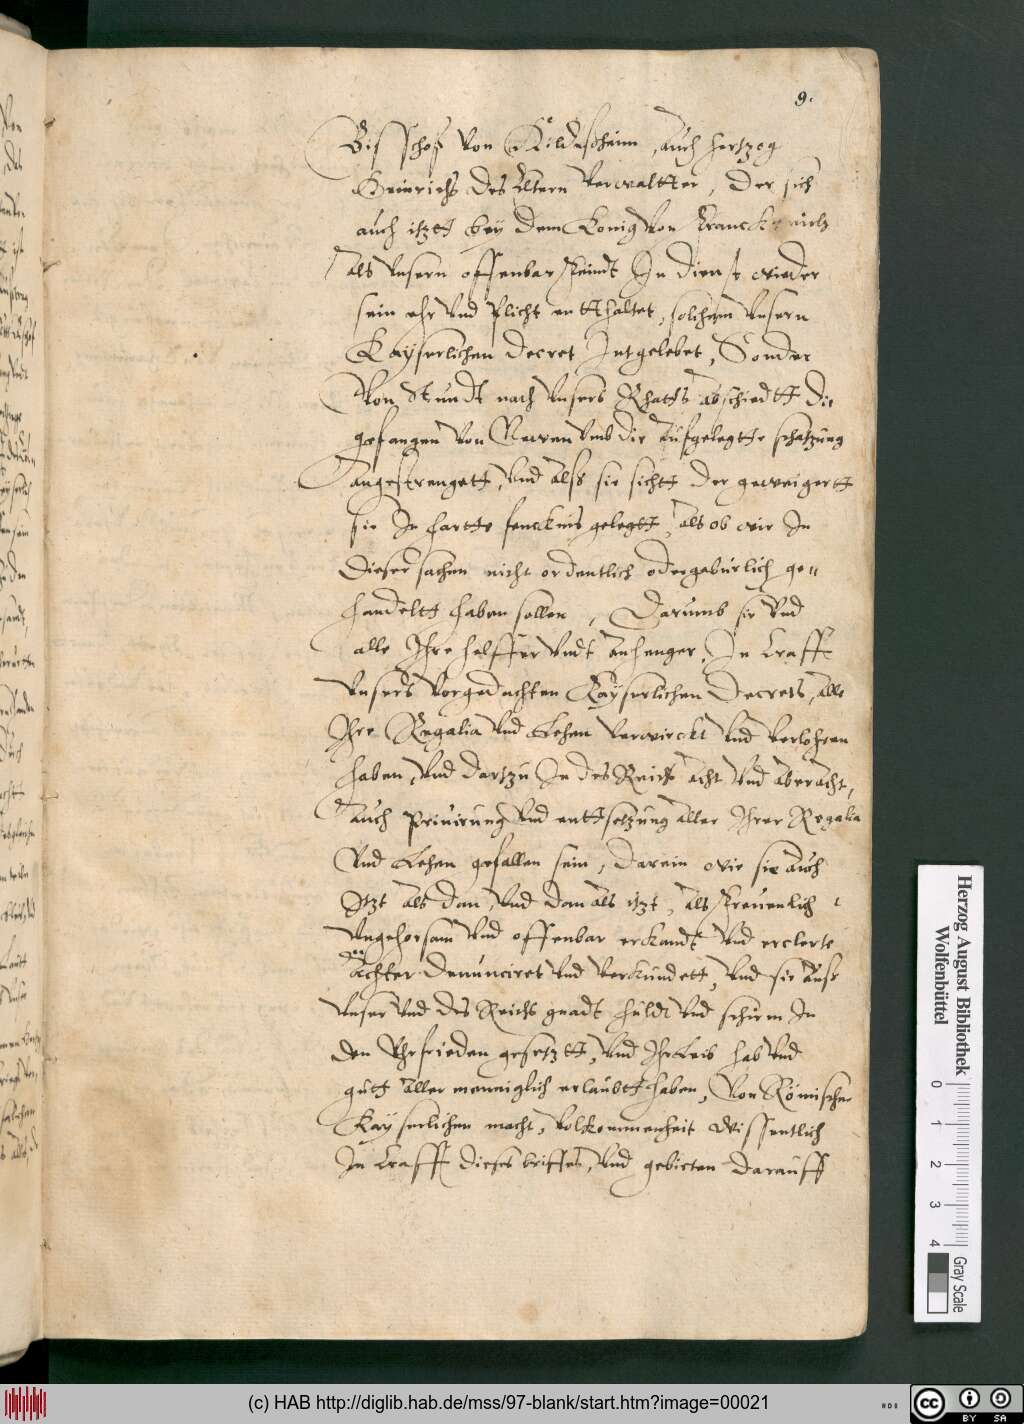 9.
Bisschoff von Hildesheim, auch hertzog
Heinrichs des Eltern verwaltter, der sich
auch itztt bey dem Konig von Franckreich
als unsern offenbar Feindt In dienst wieder
sein ehr und Plicht entthaltet, solchem unsern
Kayserlichen decret gelebet, Sonder
von Stundt nach unsers Rhatts abschiedtt die
gefangen von Newen umb die aufgelegtte schatzung
angestrengett, und alss sie sichtt der geweigertt
sie In hartte fencknis gelegtt, als ob wir In
dieser sachen nicht ordentlich oder geburlich ge=
handeltt haben sollen, Darumb sie und
alle Ihre helffer undt anhenger, In krafft
unsers vorgedachten Kayserlichen Decrets, alle
Ihre Regalia und Lehen verwirckt und verlohren
haben, und dartzu In des Reichs acht und aberacht,
auch Privirung und enttsetzung aller Ihrer Regalia
und Lehen gefallen sein, darein wir sie auch
Itzt als dan, und dan als itzt, als Frevenlich
ungehorsam und offenbar erkandt und erclerte
achter denunciret und verkundett, und sie aus
unser und des Reichs gnadt huldt und schirm In
den Uhnfrieden gesetztt, und Ihr Leib hab und
gutt aller menniglich erlaubtt haben, von Römischer
Kayserlichen macht, volkommenheit wissentlich
In krafft dieses briffes, und gebieten darauff
Herzog August Bibliothek
Wolfenbüttel
0 1 2 3 4
Gray Scale
(c) HAB http://diglib.hab.de/mss/97-blank/start.htm?image=00021
HAB
cc BY SA